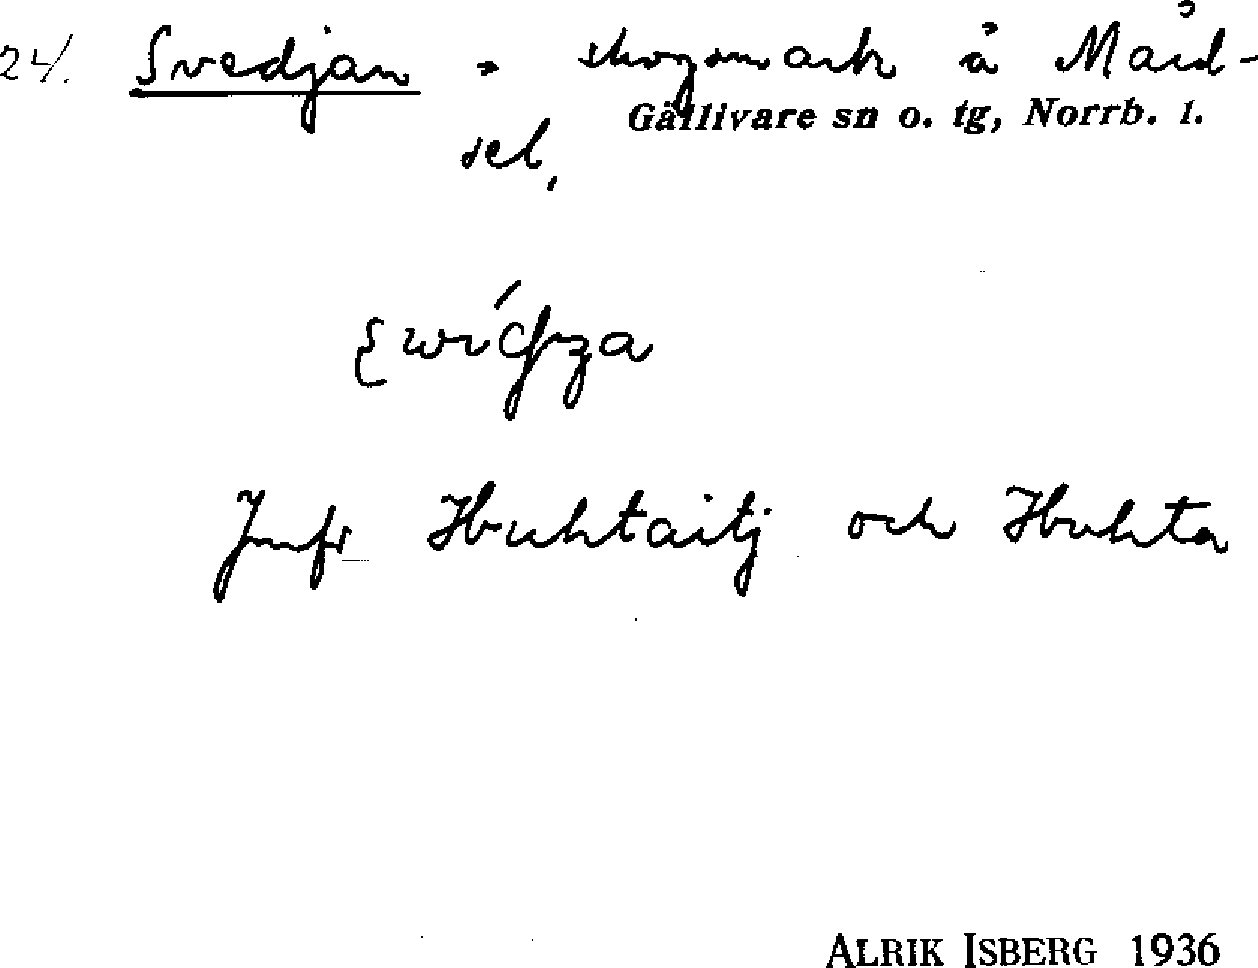 24. Svedjan - skogsmark å Mård-
Gällivare sn o. tg, Norrb. l.
sel.
Jmfr Huhtaitj och Huhta
ALRIK ISBERG 1936